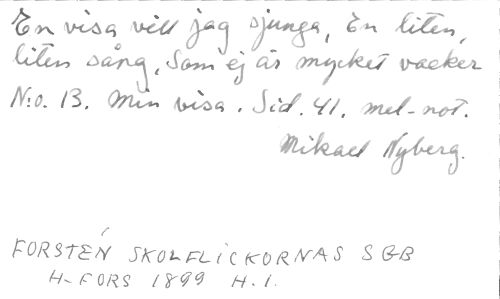 En visa vill jag sjunga, En liten,
liten sång, Som ej är mycket vacker
N:o. 13. Min visa. Sid. 41. mel-not.
Mikael Nyberg.
FORSTÉN SKOLFLICKORNAS SGB
H-FORS 1899 H.1.